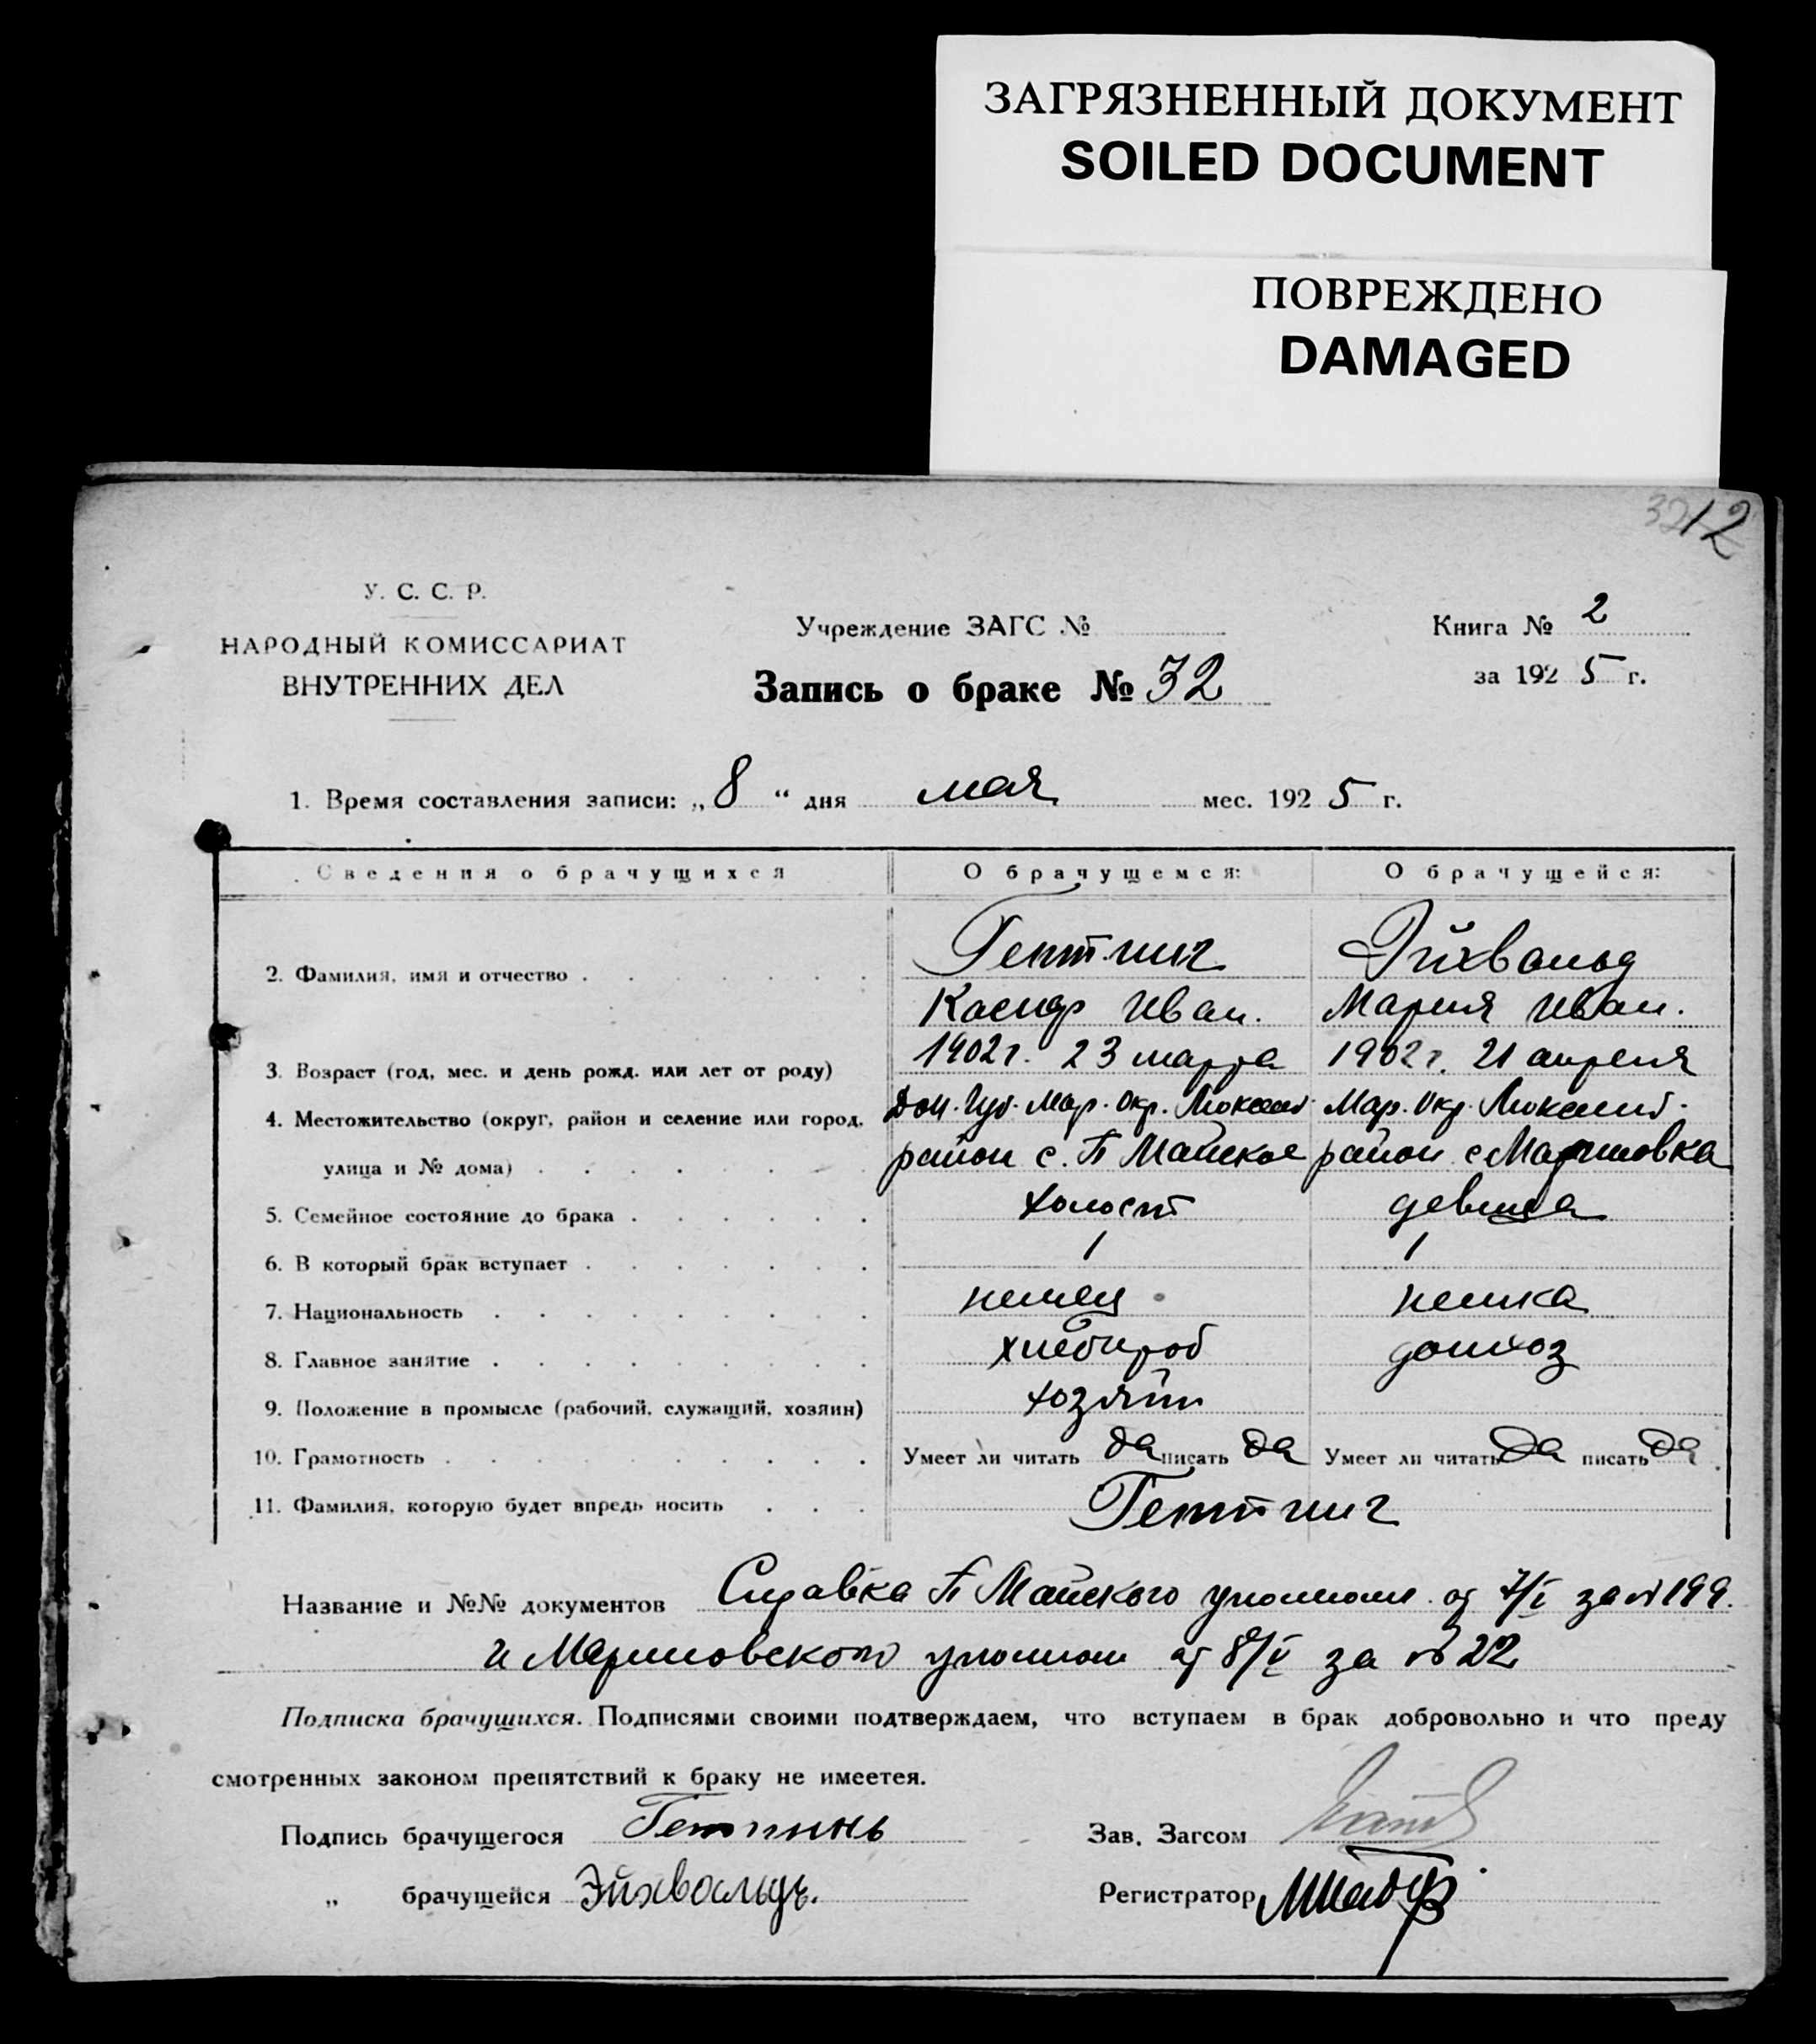 ЗАГРЯЗНЕННЫЙ ДОКУМЕНТ
SOILED DOCUMENT
ПОВРЕЖДЕНО
DAMAGED
32 12
У. С. С. Р.
НАРОДНЫЙ КОМИССАРИАТ
ВНУТРЕННИХ ДЕЛ
Учреждение ЗАГС №
Запись о браке № 32
Книга № 2
за 1925 г.
1. Время составления записи: „8“ дня мая мес. 1925 г.
Сведения о брачущихся О брачущемся: О брачущейся:
2. Фамилия, имя и отчество Геттинг Эйхвальд
Касиар Иван. Мария Иван.
3. Возраст (год, мес. и день рожд. или лет от роду) 1902 г. 23 марта 1902 г. 21 апреля
4. Местожительство (округ, район и селение или город, Дон. Губ. Мар. Окр. Люксемб. Мар. Окр. Люксемб.
улица и № дома) район с. П Майское район с Мариновка
5. Семейное состояние до брака холост девица
6. В который брак вступает 1 1
7. Национальность немец немка
8. Главное занятие хлебороб домхоз
9. Положение в промысле (рабочий, служащий, хозяин) хозяин
10. Грамотность Умеет ли читать да писать да Умеет ли читать да писать да
11. Фамилия, которую будет впредь носить Геттинг
Название и №№ документов Справка П Майского уполном. от за № 199.
и Мариновского уполном от 8/V за № 22
Подписка брачущихся. Подписями своими подтверждаем, что вступаем в брак добровольно и что преду
смотренных законом препятствий к браку не имеетея.
Подпись брачущегося Геттинь Зав. Загсом
„ брачущейся Эйхвальдъ. Регистратор